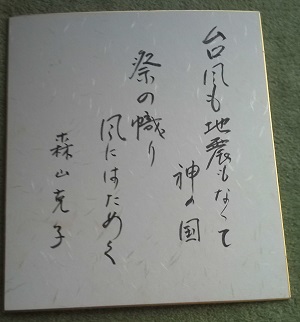 台風も地震もなくて
神の国
祭の幟り
風にはためく
森山克子